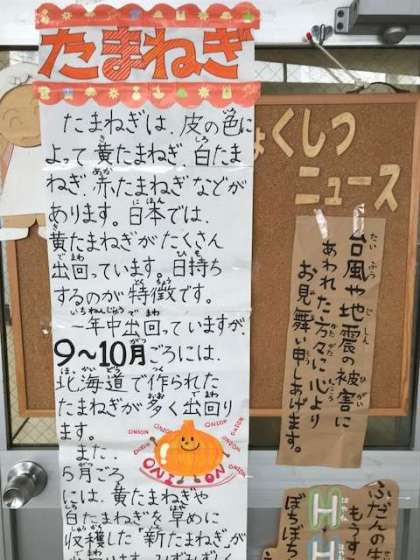 たまねぎ
たまねぎは、皮の色に
よって黄たまねぎ、白たま
ねぎ、赤たまねぎなどが
あります。日本では、
黄たまねぎがたくさん
出回っています。日持ち
するのが特徴です。
一年中出回っていますが、
9〜10月ごろには、
北海道で作られた
たまねぎが多く出回り
ます。
また、
5月ごろ
には、黄たまねぎや
白たまねぎを早めに
収穫した"新たまねぎ"が
ONION
ONION
ONION
ONION
ONION
ょくしつ
ニュース
台風や地震の被害に
あわれた方々に心より
お見舞い申しあげます。
ふだんの
もうす
ぼちぼ
H
H